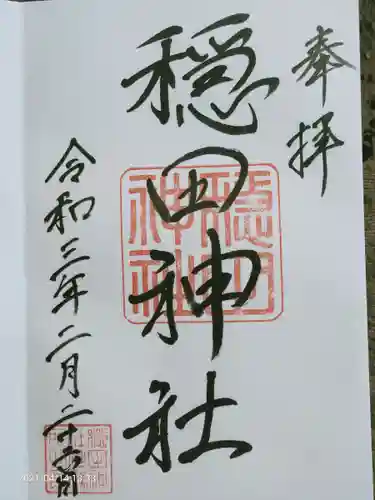 奉拝
穏田神社
穏田神社
令和三年二月二十六日
2021.04/14 13:33